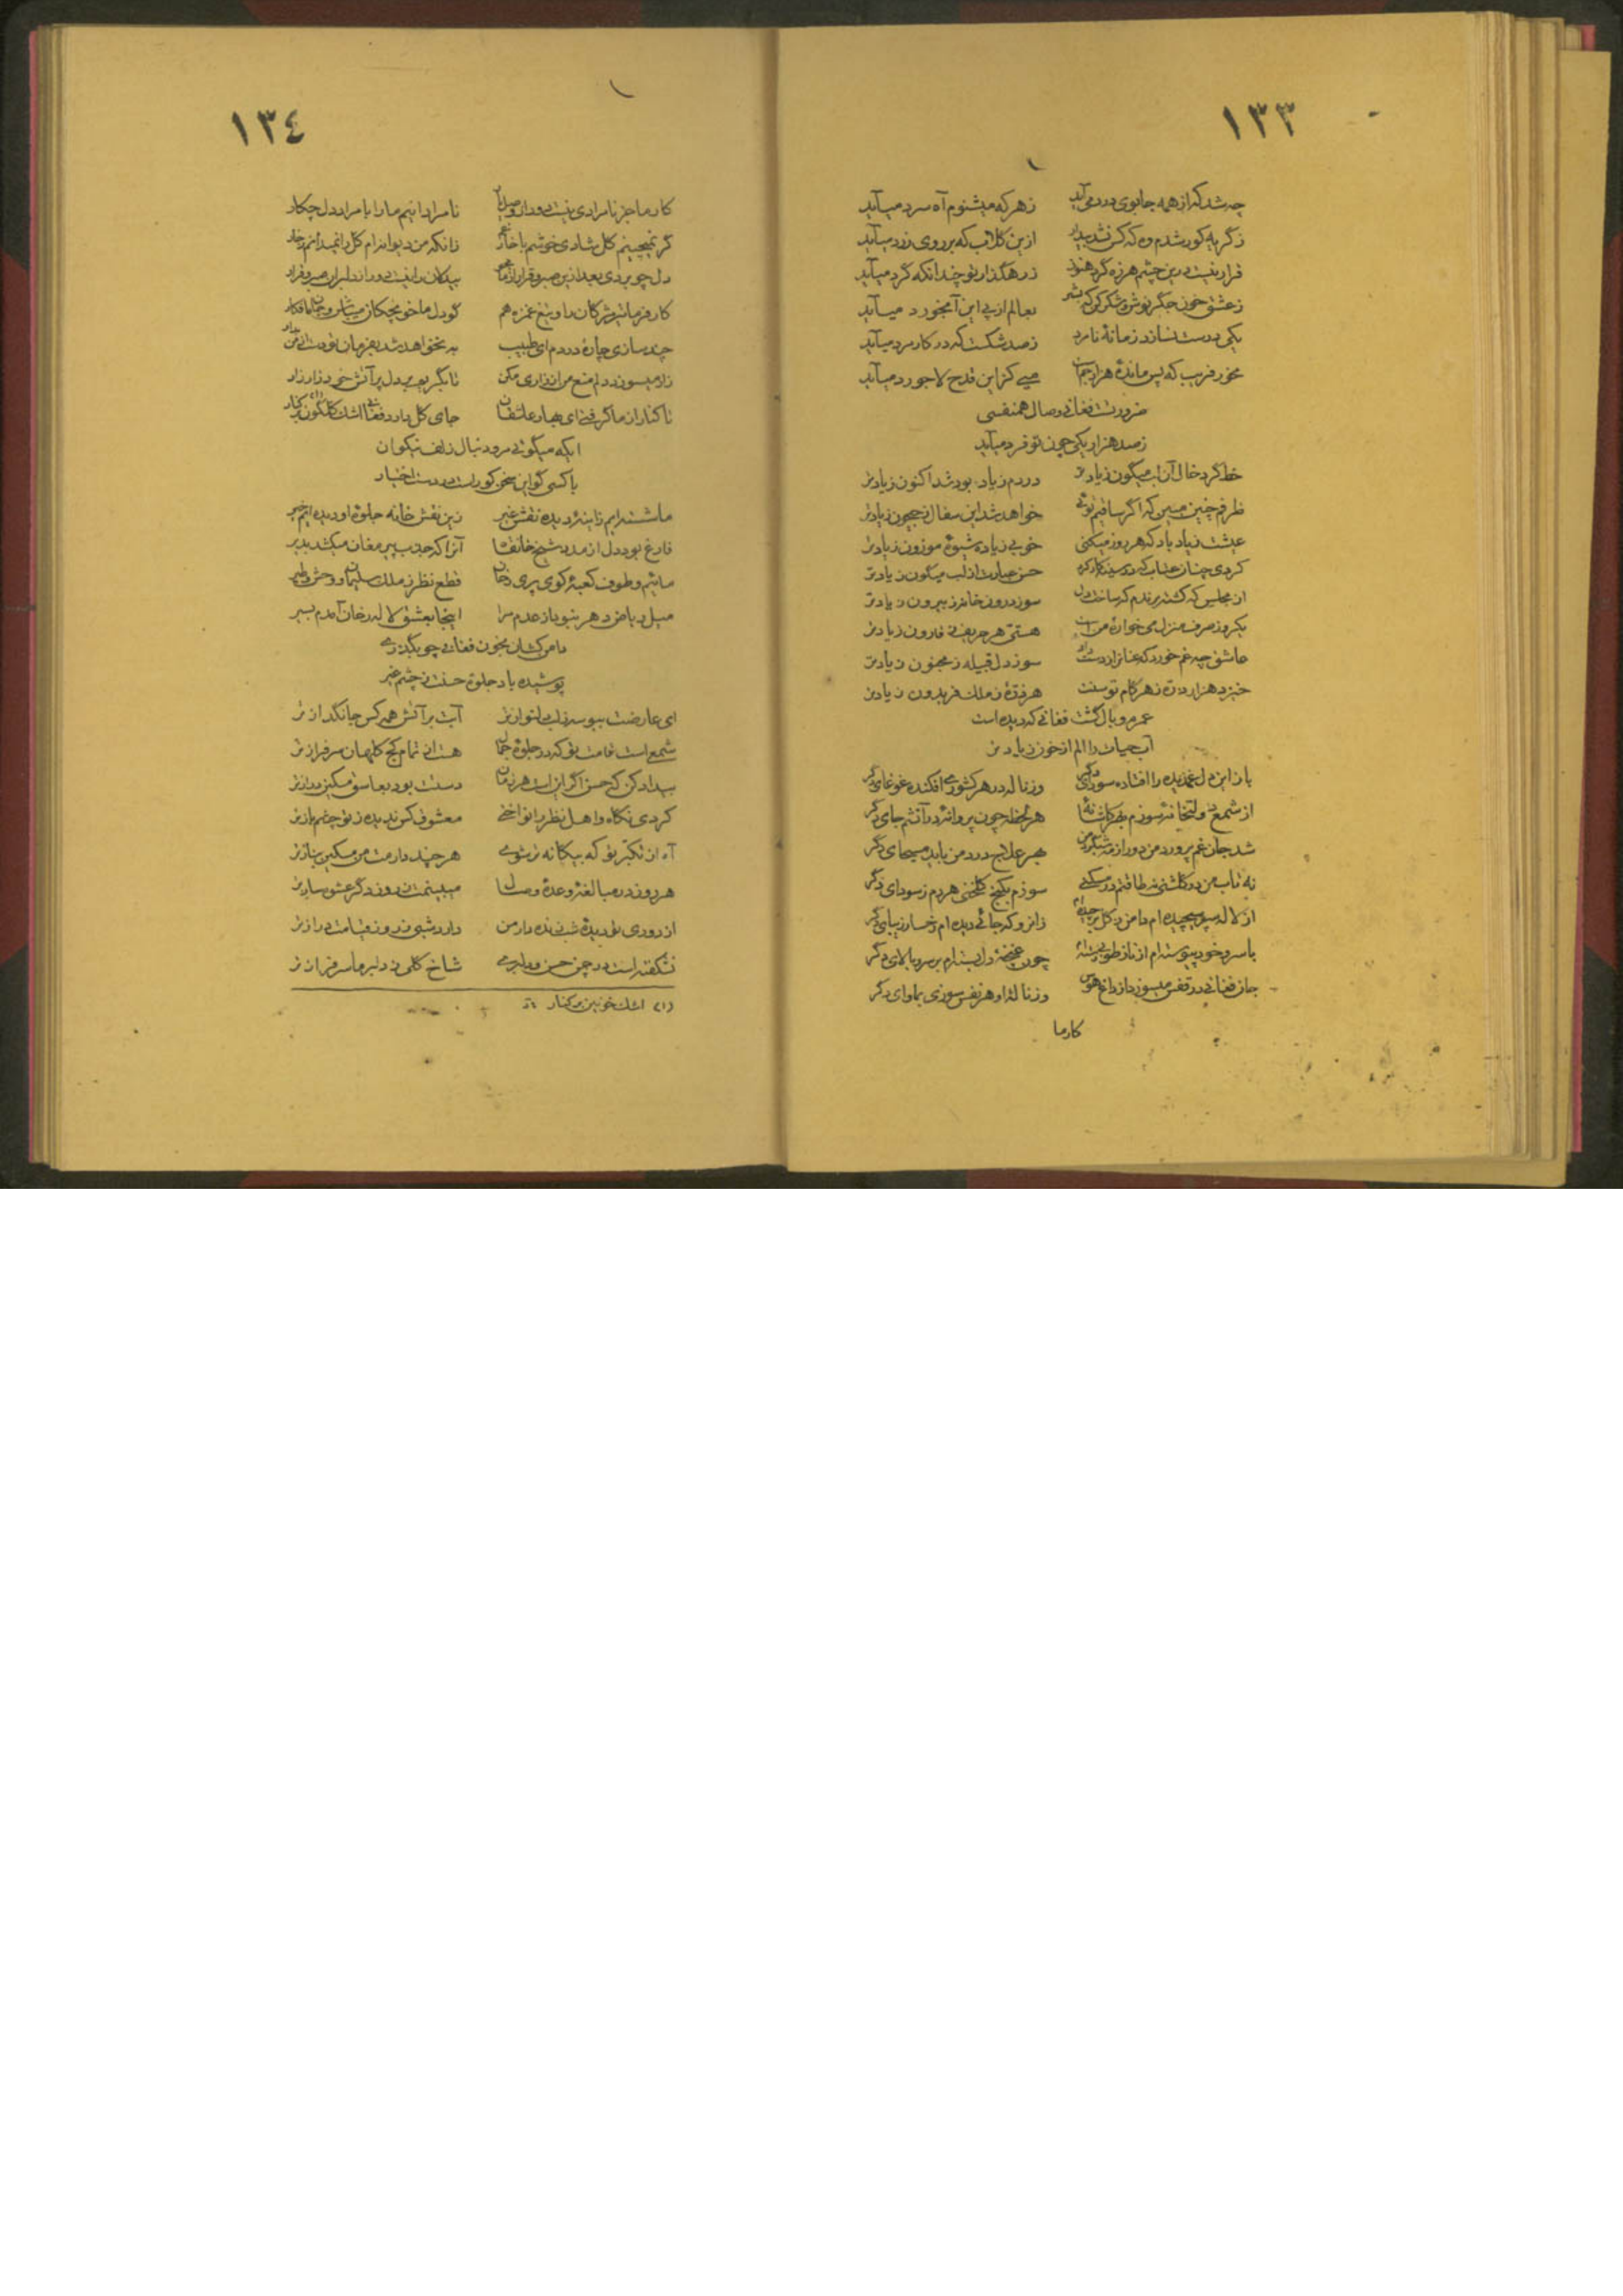 ١٣٣
چه شد که از همه جا بوی درد می آید زهر که میشنوم آه سرد میآید
ز گریه کور شدم وه که کس نشد بیدار ازین گلاب که بر روی زرد میآید
قرار نیست درین چشم هرزه گرد هنوز ز رهگذار تو چندانکه گرد میآید
ز عشق خون جگر نوش و شکر کن که بشر بعالم از پی این آبخورد میآید
یکی درست نسازد زمانهٔ نامرد ز صد شکست که در کار مرد میآید
مخور فریب که پس ماندهٔ هزار جم است میی کزین قدح لاجورد میآید
ضرورتست فغانی وصال همنفسی
ز صد هزار یکی چون تو فرد میآید
خط کرد خال آن لب میگون زیادتر دردم زیاد بود شد اکنون زیادتر
ظرفم چنین مبین که اگر ساقیم توئی خواهد شد این سفال ز جیحون زیادتر
عیشت زیاد باد که هر روز میکنی خوبی زیاده شیوهٔ موزون زیادتر
کردی چنان عتاب که در سینه کار کرد حسن عبارت از لب میگون زیادتر
از مجلس که گشته برندم که ساخت دل سوز درون خانه ز بیرون زیادتر
یکروز صرف منزل می خوارهٔ من است هستی هر حریف ز قارون زیادتر
عاشق چه غم خورد که عنانرا ز دست داد سوز دل قبیله ز مجنون زیادتر
خیزد هزار ذره ز هر گام توسنت هر ذرهٔ ز ملک فریدون زیادتر
عمرم وبال گشت فغانی که دیده است
آب حیات را الم از خون زیادتر
باز این دل غمدیده را افتاده سودای دگر وز ناله در هر کشوری افکنده غوغای دگر
از شمع دولتخانه سوزم بهر کاشانهٔ هر لحظه چون پروانهٔ در آتشم جای دگر
شد جان غم پرورد من دور از مه شبگرد من بهر علاج درد من باید مسیحای دگر
نه تاب من در گلشنی نه طاقتم در مسکنی سوزم بکنج گلخنی هردم ز سودای دگر
از لاله سر پیچیده ام دامن ز گل برچیده ام زانرو که جائی دیده ام رخسار زیبای دگر
با سرو خود پیوسته ام از ناز طوبی رسته ام چون غنچه دل بسته ام بر سرو بالای دگر
جان فغانی در قفس میسوزد از داغ هوس وز نالهٔ او هر نفس سوزی بماوای دگر
کارما
١٣٤
کار ما جز نامرادی نیست دور از وصل یار نامرادانیم ما را با مراد دل چکار
گر نمیچینم گل شادی خوشم با خار غم زانکه من دیوانه ام گل را نمیدانم ز خار
دل چو بردی بعد ازین صبر و قرار از ما مجو بیدلان را نیست دور از دلبران صبر و قرار
کار فرما تیر مژگان را و تیغ غمزه هم گو دل ما خون چکان میباش و جان ما فکار
چند سازی چارهٔ دردم ای طبیب به نخواهد شد بفرمان تو دست از من بدار
زار میسوزد دلم منع من از زاری مکن تا بگریم بر دل پر آتش خود زار زار
تا کنار از ما گرفتی ای بهار عاشقان جای گل دارد فغانی اشک گلگون (١) در کنار
ایکه میگوئی مرو دنبال زلف نیکوان
با کسی گو این سخن کو راست در دست اختیار
ما شسته ایم ز اینهٔ دیده نقش غیر زین نقش خانه جلوهٔ او دیده ایم خیر
فارغ بود دل از مدد شیخ خانقاه آنرا که جذب پیر مغان میکشد بدیر
مائیم و طوف کعبهٔ کوی پری رخان قطع نظر ز ملک سلیمان و وحش و طیر
میل ریاض دهر نبود از عدم مرا اینجا بعشق لاله رخان آمدم بسیر
دامن کشان بخون فغانی چو بگذری
پوشیده باد جلوهٔ حسنت ز چشم غیر
ای عارضت ببوسه ز لب دلنوازتر آبت بر آتش همه کس جانگدازتر
شمع است قامت تو که در جلوهٔ جمال هست از تمام کج کلهان سرفرازتر
بیداد کن که حسن اگر این است هر زمان دستت بود بعاشق مسکین درازتر
کردی نگاه و اهل نظر را نواختی معشوق کس ندیده ز تو چشم بازتر
آه از تکبر تو که بیگانه تر شوی هر چند دارمت من مسکین بنازتر
هر روز در مبالغهٔ وعدهٔ وصال میبینمت ز روز دگر عشوه سازتر
از دوری تو دیدهٔ شب زنده دار من دارد شبی ز روز قیامت درازتر
نشکفته است در چمن حسن و دلبری شاخ گلی ز دلبر ما سرفرازتر
(١) اشک خونین در کنار